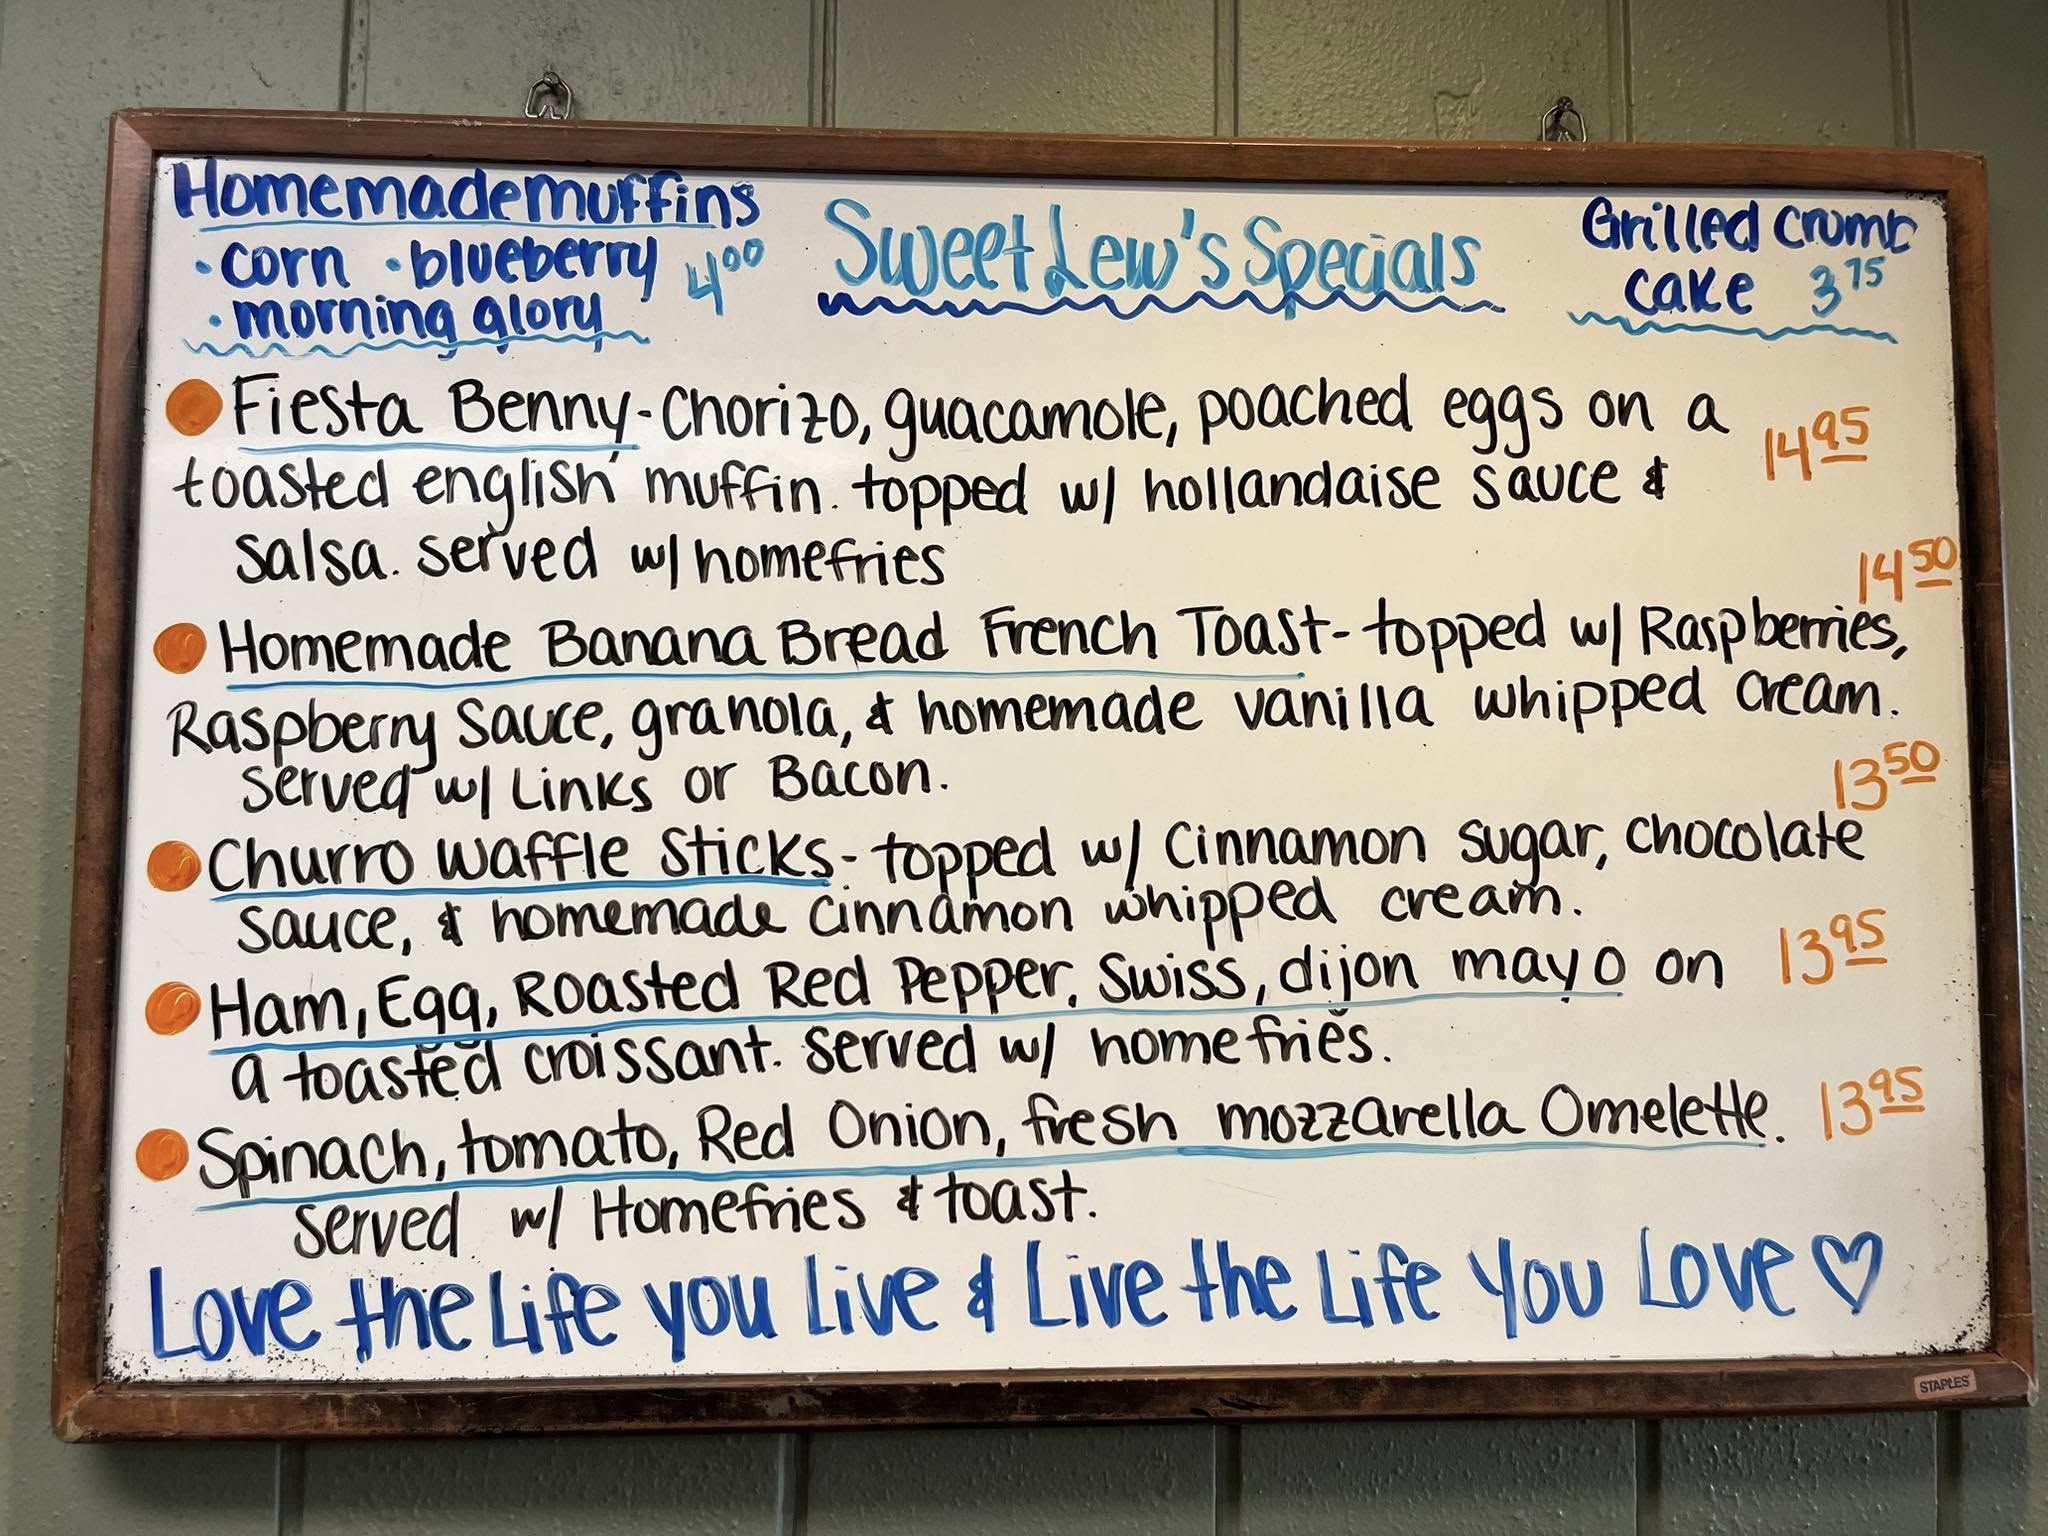 Homemade muffins
• corn • blueberry 4.00
• morning glory
Sweet Lew's Specials
Grilled crumb
cake 3.75
Fiesta Benny - Chorizo, guacamole, poached eggs on a 14.95
toasted english muffin. topped w/ hollandaise sauce &
salsa. served w/ homefries
14.50
Homemade Banana Bread French Toast - topped w/ Raspberries,
Raspberry Sauce, granola, & homemade vanilla whipped cream.
served w/ Links or Bacon.
13.50
Churro Waffle Sticks - topped w/ Cinnamon sugar, chocolate
sauce, & homemade cinnamon whipped cream.
Ham, Egg, Roasted Red Pepper, Swiss, dijon mayo on 13.95
a toasted croissant. served w/ homefries.
Spinach, tomato, Red Onion, fresh mozzarella Omelette. 13.95
served w/ Homefries & toast.
Love the Life you Live & Live the Life You Love ♡
STAPLES